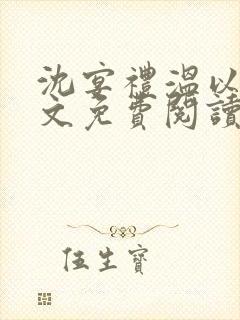 沈宴禮溫以
文免費閱讀
伍生寶